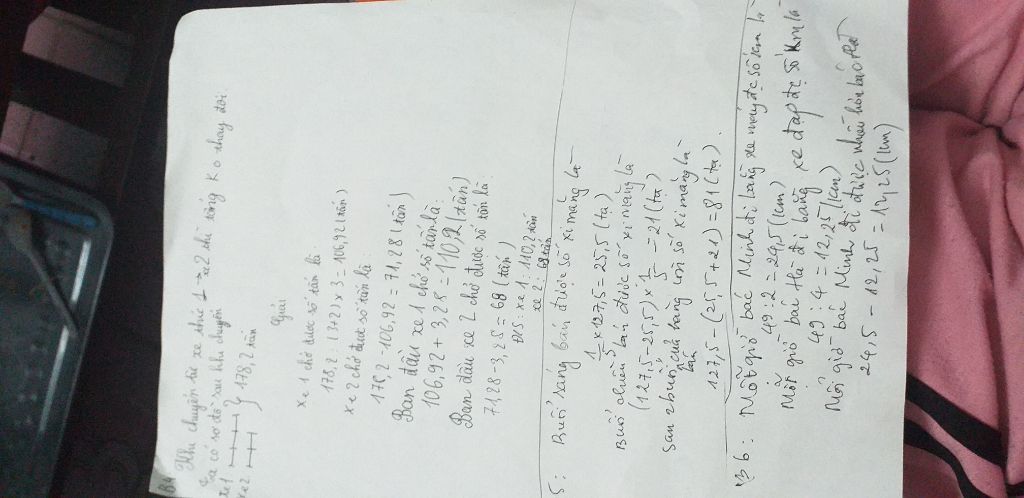 B4 Khi chuyển từ xe thứ 1 → xe 2 thì tổng k o thay đổi.
Ta có sơ đồ sau khi chuyển
xe 1
xe 2 178,2 tấn
Giải
xe 1 chở được số tấn là:
178,2 : (3+2) x 3 = 106,92 (tấn)
xe 2 chở được số tấn là:
178,2 - 106,92 = 71,28 (tấn)
Ban đầu xe 1 chở số tấn là:
106,92 + 3,28 = 110,2 (tấn)
Ban đầu xe 2 chở được số tấn là:
71,28 - 3,28 = 68 (tấn)
Đ/S: xe 1: 110,2 tấn
xe 2: 68 tấn
5: Buổi sáng bán được số xi măng là
1/5 x 127,5 = 25,5 (tạ)
Buổi chiều bán được số xi măng là
(127,5 - 25,5) x 1/5 = 21 (tạ)
Sau 2 buổi bán cửa hàng còn số xi măng là
127,5 - (25,5 + 21) = 81 (tạ).
B 6: Mỗi giờ bác Minh đi bằng xe máy đc số km là
49 : 2 = 24,5 (km)
Mỗi giờ bác Hà đi bằng xe đạp đc số km là
49 : 4 = 12,25 (km)
Mỗi giờ bác Minh đi được nhiều hơn bác Hà
24,5 - 12,25 = 12,25 (km)